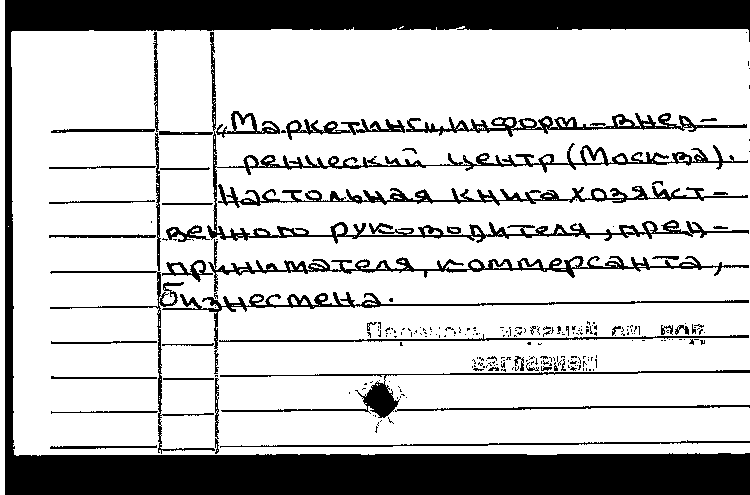 „Маркетинг", информ.-внед-
ренческий центр (Москва).
Настольная книга хозяйст-
венного руководителя, пред-
принимателя, коммерсанта,
бизнесмена.
Перечень изданий см. под
заглавием